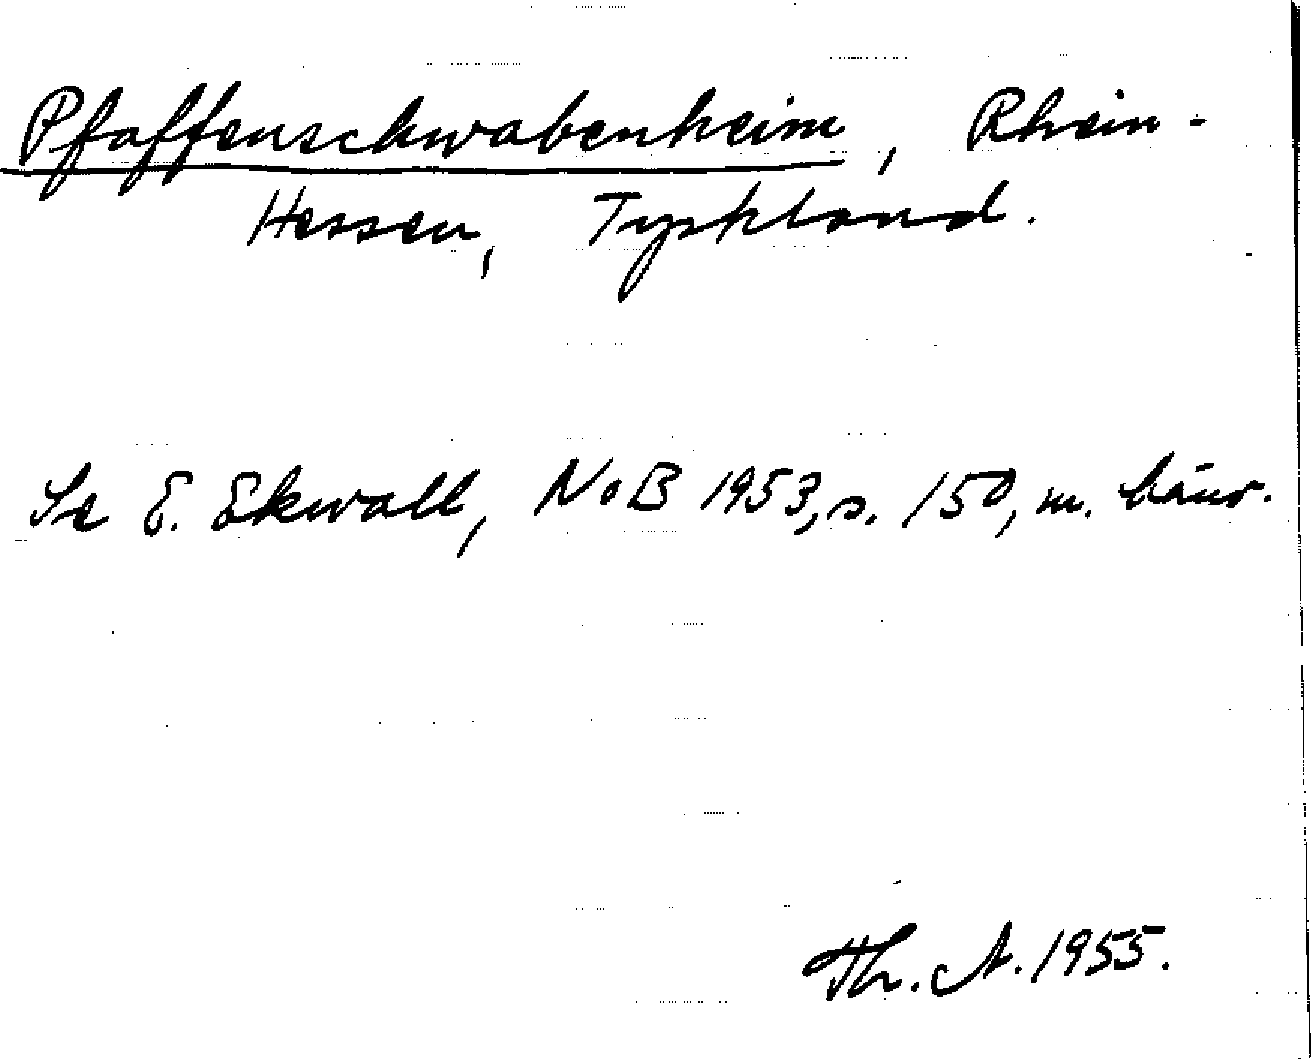 Pfaffenschwabenheim, Rhein-
Hessen, Tyskland.
Se E. Ekwall, NoB 1953, s. 150, m. hänv.
Th. A. 1955.